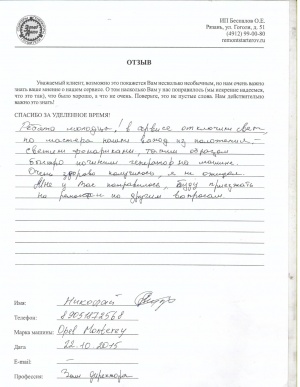 ИП Беспалов О.Е.
Рязань, ул. Гоголя, д. 51
(4912) 99-00-80
remontstarterov.ru
ОТЗЫВ
Уважаемый клиент, возможно это покажется Вам несколько необычным, но нам очень важно
знать ваше мнение о нашем сервисе. О том насколько Вам у нас понравилось (мы искренне надеемся,
что это так), что было хорошо, а что не очень. Поверьте, это не пустые слова. Нам действительно
важно это знать!
СПАСИБО ЗА УДЕЛЕННОЕ ВРЕМЯ!
Ребята молодцы! в сервисе отключили свет,
но мастера нашли выход из положения.
Светили фонариками, таким образом
быстро починили генератор на машине.
Очень здорово получилось, я не ожидал
Мне у Вас понравилось, буду приезжать
на ремонт и по другим вопросам.
Имя: Николай
Телефон: 89051872568
Марка машины: Opel Monterey
Дата: 22.10.2015
E-mail: —
Профессия: Зам директора